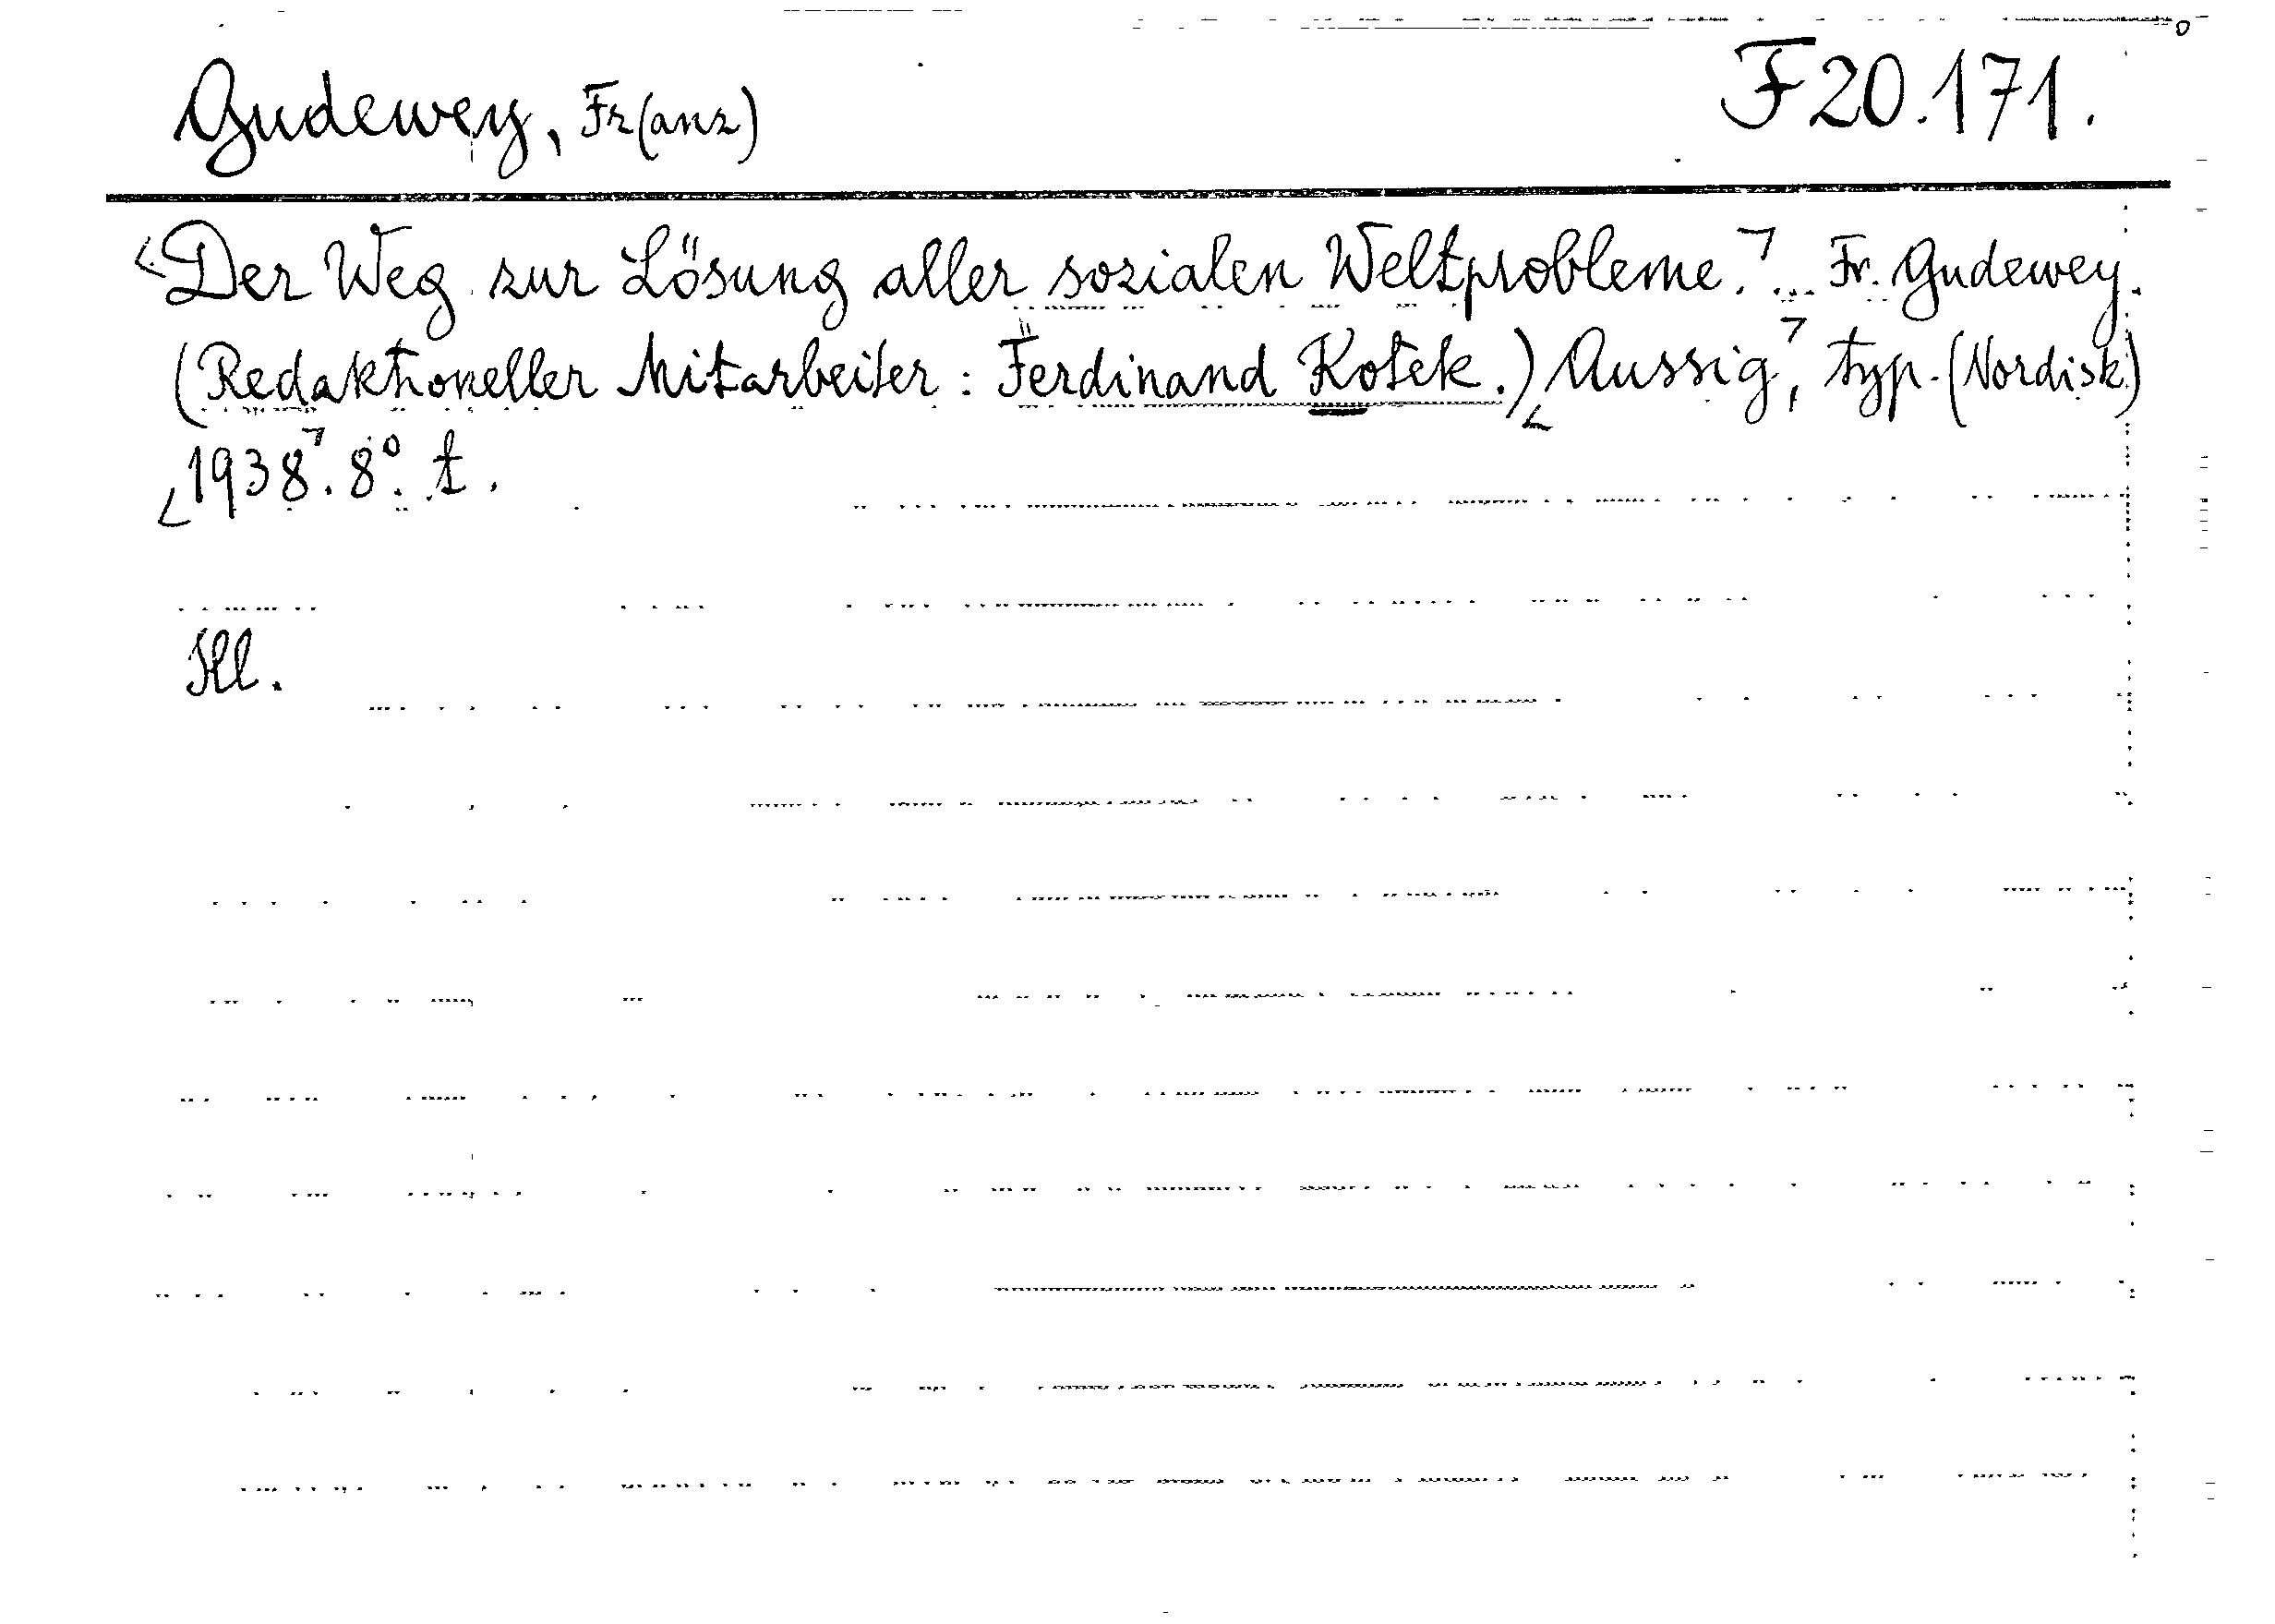 Gudewey, Fr(anz) F 20.171.
Der Weg zur Lösung aller sozialen Weltprobleme. ... Fr. Gudewey.
(Redaktioneller Mitarbeiter: Ferdinand Kotek.) Aussig, typ. (Nordisk)
1938. 8°. t.
Kl.